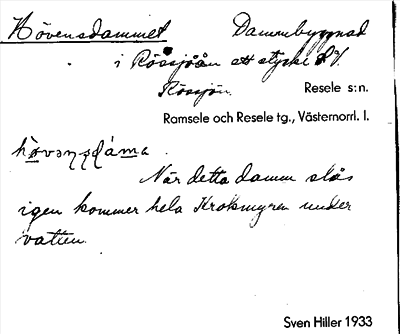 Hövensdammet Dammbyggnad
i Rössjöån ett stycke S.V.
Rössjön. Resele s:n.
Ramsele och Resele tg., Västernorrl. l.
När detta damm slås
igen kommer hela Krokmyren under
vatten.
Sven Hiller 1933